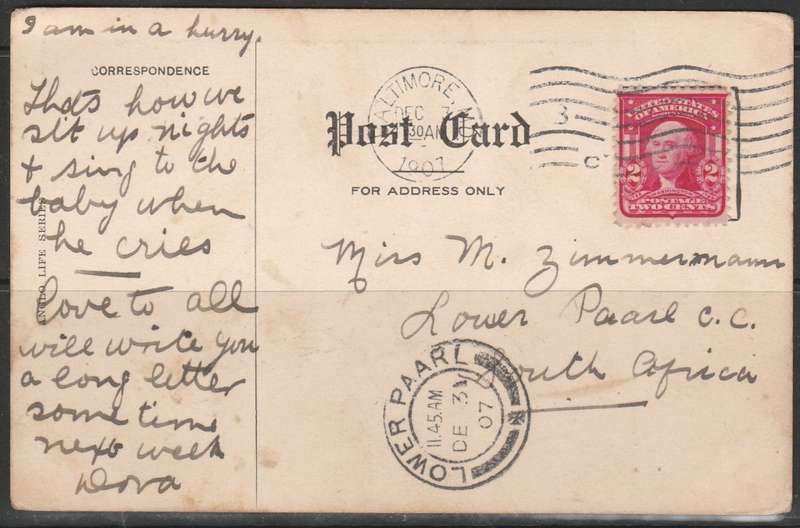 I am in a hurry.
CORRESPONDENCE
Thats how we
sit up nights
+ sing to the
baby when
he cries
love to all
will write you
a long letter
some time
next week
Dora
ANGLO LIFE SERIES
Post Card
FOR ADDRESS ONLY
BALTIMORE, MD
DEC 7
30AM
1907
3
C
UNITED STATES
OF AMERICA
2 2
POSTAGE
TWO CENTS
Miss M. Zimmermann
Lower Paarl C.C.
South Africa
LOWER PAARL
11.45 AM
DE 31
07